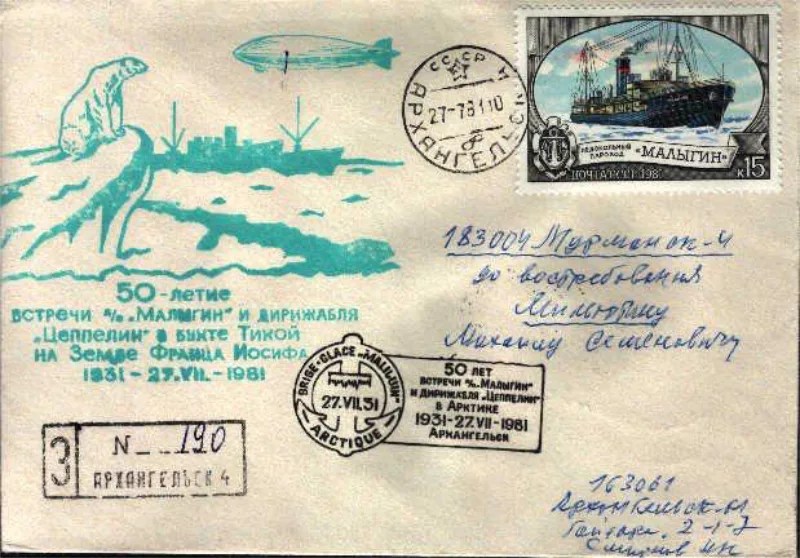 СССР
АРХАНГЕЛЬСК
27-7 81 10
ЛЕДОКОЛЬНЫЙ
ПАРОХОД «МАЛЫГИН»
ПОЧТА СССР 1981
к15
50-летие
встречи л/п „Малыгин" и дирижабля
„Цеппелин" в бухте Тикой
на Земле Франца Иосифа
1931-27.VII.-1981
183004 Мурманск-4
до востребования
Милютину
Михаилу Семеновичу
BRISE-GLACE „MALIGUIN"
27.VII.31
ARCTIQUE
50 ЛЕТ
ВСТРЕЧИ Л/П „МАЛЫГИН"
И ДИРИЖАБЛЯ „ЦЕППЕЛИН"
В АРКТИКЕ
1931-27.VII-1981
АРХАНГЕЛЬСК
З
N 190
АРХАНГЕЛЬСК 4
163061
Архангельск-61
2-1-7